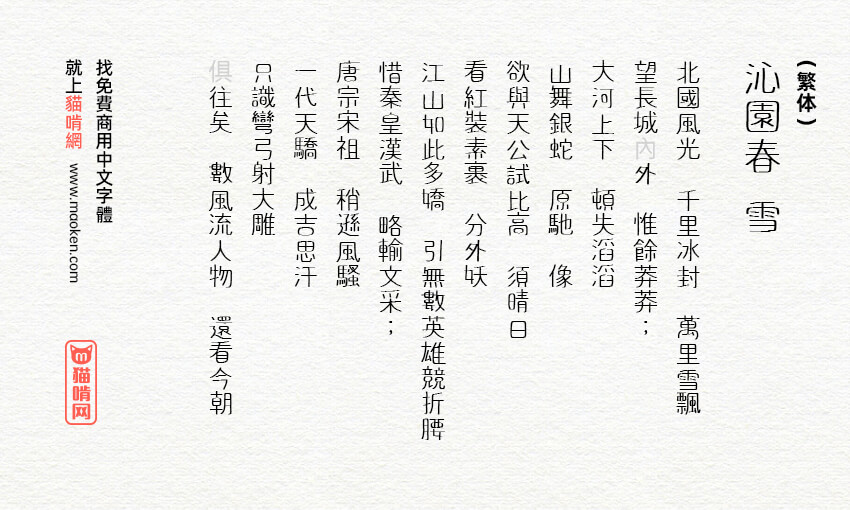 (繁体)
沁園春 雪
北國風光 千里冰封 萬里雪飄
望長城內外 惟餘莽莽；
大河上下 頓失滔滔
山舞銀蛇 原馳 像
欲與天公試比高 須晴日
看紅裝素裹 分外妖
江山如此多嬌 引無數英雄競折腰
惜秦皇漢武 略輸文采；
唐宗宋祖 稍遜風騷
一代天驕 成吉思汗
只識彎弓射大雕
俱往矣 數風流人物 還看今朝
找免費商用中文字體
就上貓啃網 www.mooken.com
貓啃网